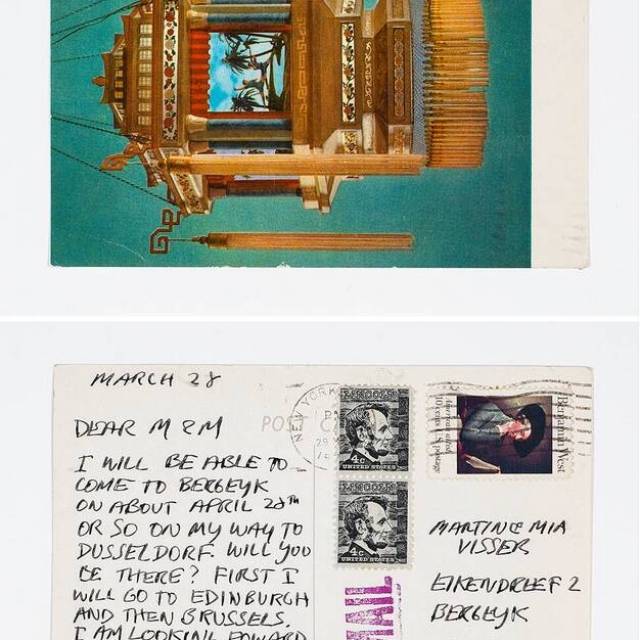 MARCH 28
DEAR M & M
I WILL BE ABLE TO
COME TO BERGEYK
ON ABOUT APRIL 28TH
OR SO ON MY WAY TO
DUSSELDORF. WILL YOU
BE THERE? FIRST I
WILL GO TO EDINBURGH
AND THEN BRUSSELS.
I AM LOOKING FOWARD
POST
NEW YORK
LINCOLN
4c
UNITED STATES
LINCOLN
4c
UNITED STATES
Benjamin West
10 cents U.S. postage
MAIL
MARTIN & MIA
VISSER
EIKENDREEF 2
BERGEYK